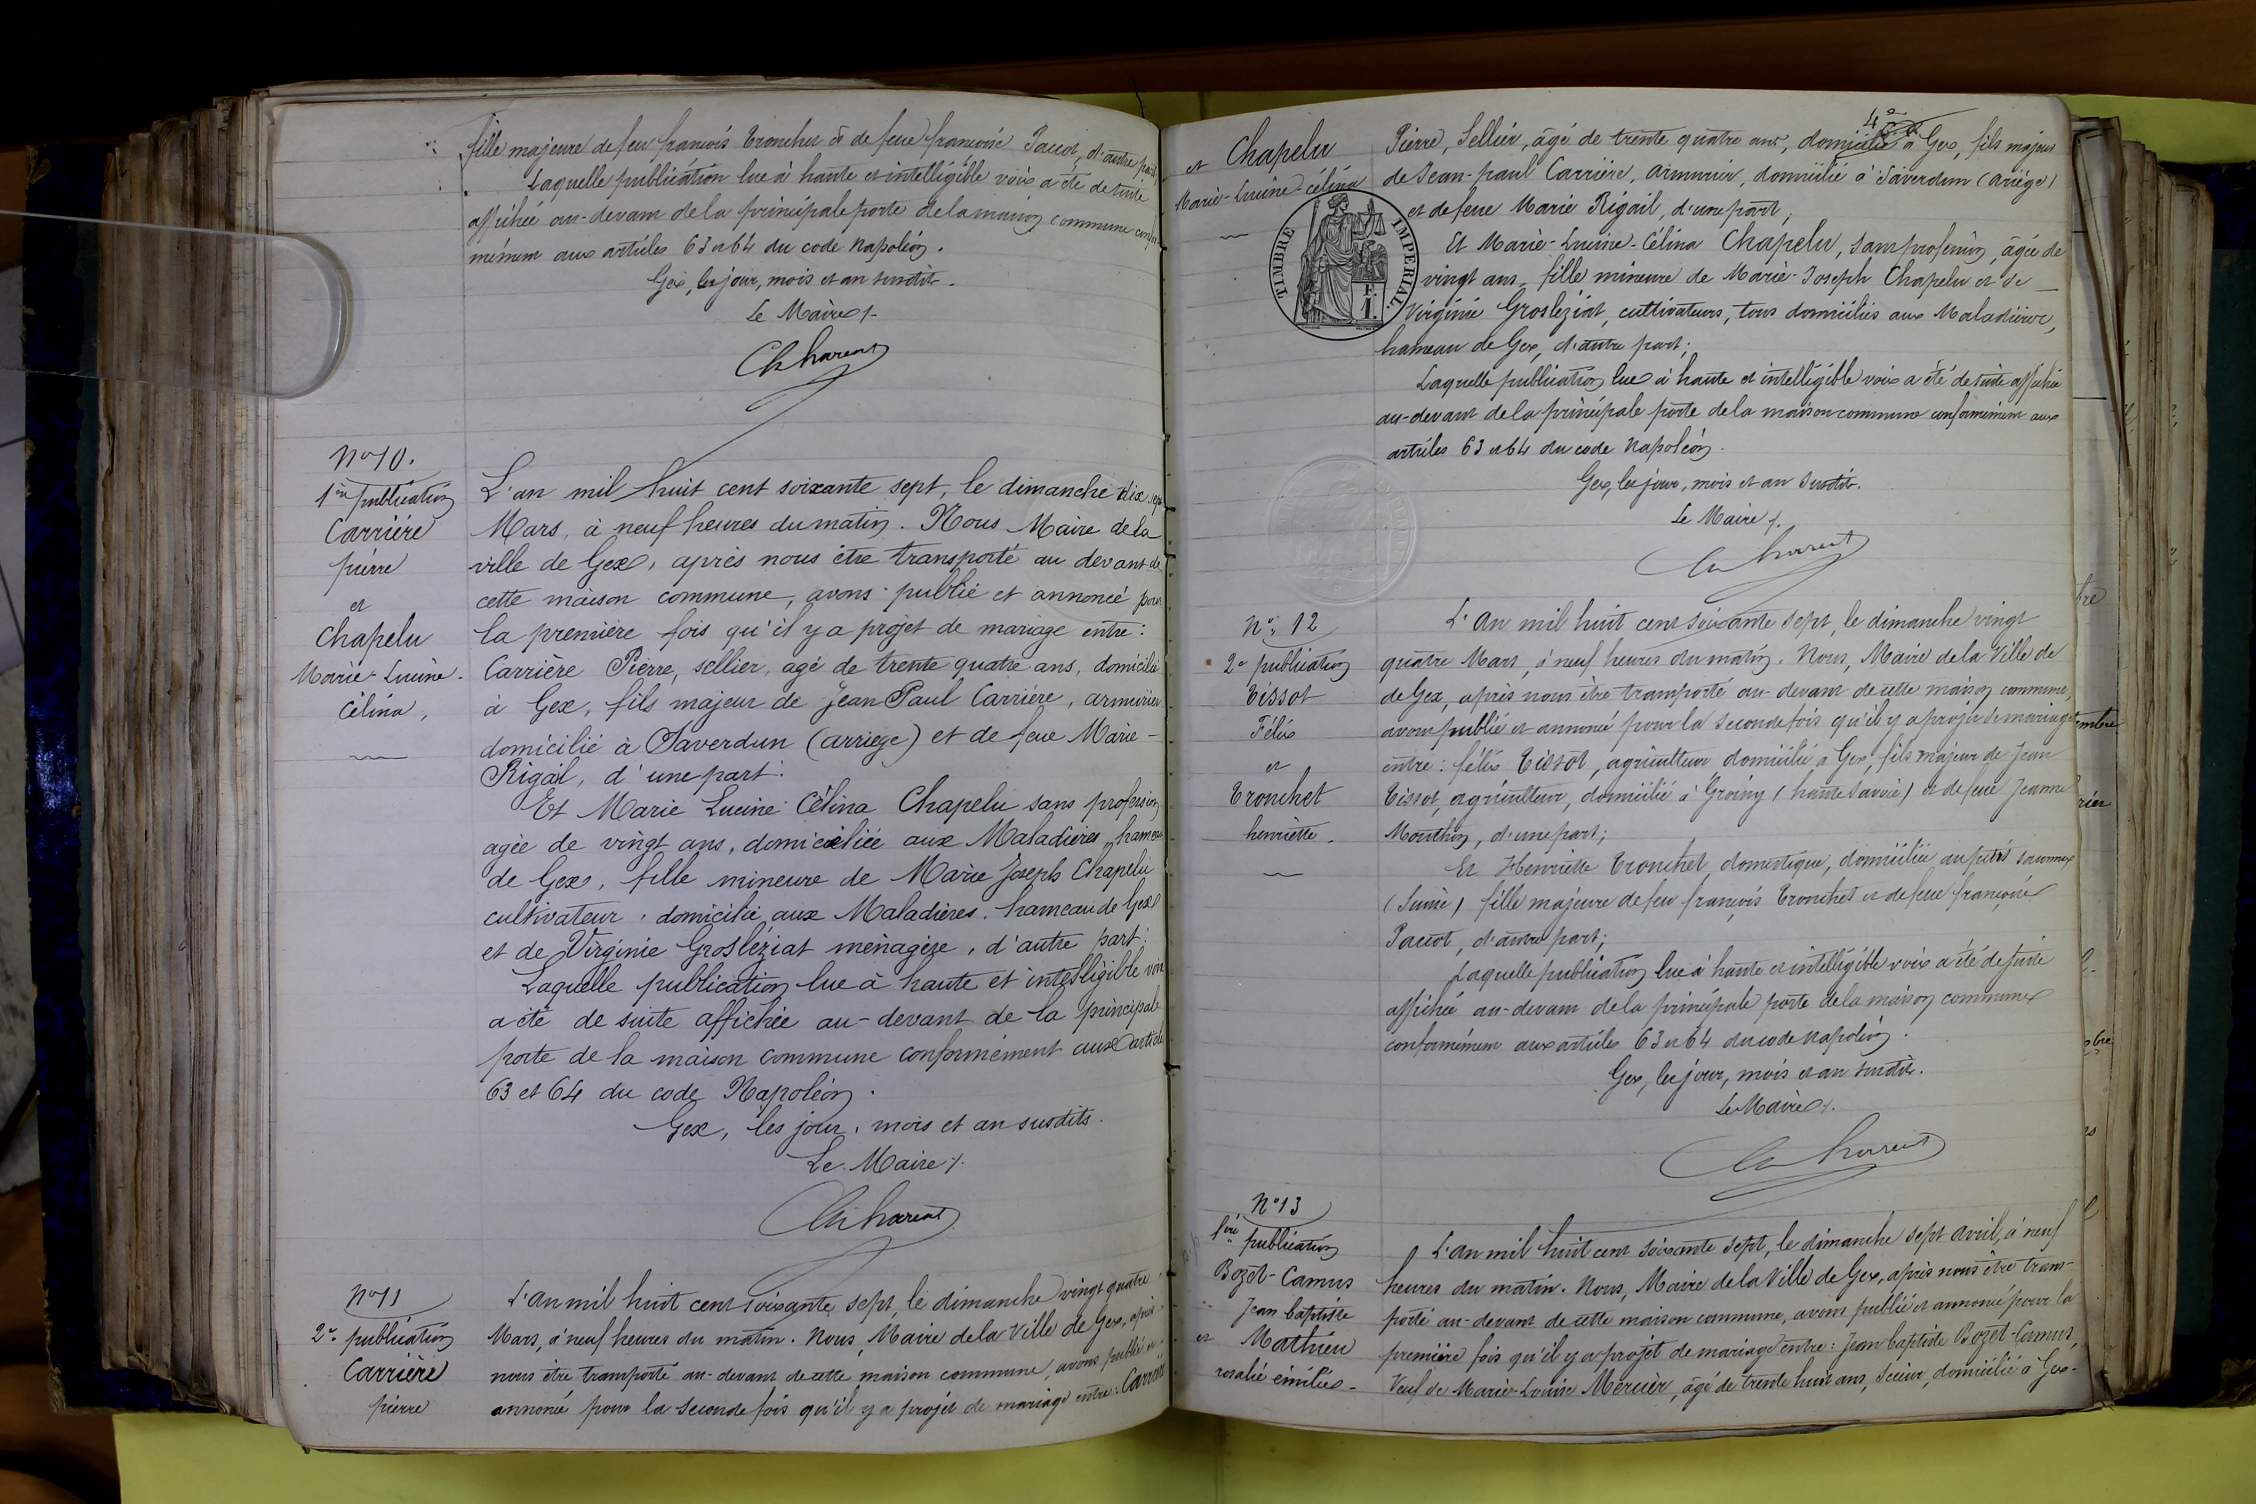 fille majeure de feu françois Tronchet et de feue françoise Pacot, d'autre part
Laquelle publication lue à haute et intelligible voix a été de suite
affichée au-devant de la principale porte de la maison commune confor
mément aux articles 63 et 64 du code Napoléon.
Gex, les jour, mois et an susdits.
Le Maire
N° 10.
1ère publication
Carrière
pierre
et
Chapelu
Marie-Lucine-
Célina,
L'an mil huit cent soixante sept, le dimanche dix sept
Mars, à neuf heures du matin. Nous Maire de la
ville de Gex, après nous être transporté au devant de
cette maison commune, avons publié et annoncé pour
la première fois qu'il y a projet de mariage entre:
Carrière Pierre, sellier, agé de trente quatre ans, domicilié
à Gex, fils majeur de Jean Paul Carrière, armurier
domicilié à Saverdun (arriège) et de feue Marie-
Rigail, d'une part:
Et Marie Lucine Célina Chapelu sans profession,
agée de vingt ans, domiciliée aux Maladières, hameau
de Gex, fille mineure de Marie Joseph Chapelu
cultivateur, domicilié aux Maladières, hameau de Gex
et de Virginie Grosléziat ménagère, d'autre part:
Laquelle publication lue à haute et intelligible voix
a été de suite affichée au-devant de la principale
porte de la maison commune conformément aux article
63 et 64 du code Napoléon.
Gex, les jour, mois et an susdits.
Le Maire
N° 11
2e publication
Carrière
pierre
L'an mil huit cent soixante sept, le dimanche vingt quatre
Mars, à neuf heures du matin. Nous, Maire de la Ville de Gex, après
nous être transporté au-devant de cette maison commune, avons publié et
annoncé pour la seconde fois qu'il y a projet de mariage entre: Carrière
4
et Chapelu
Marie-Lucine-Célina
TIMBRE IMPERIAL
Pierre, Sellier, âgé de trente quatre ans, domicilié à Gex, fils majeur
de Jean-paul Carrière, armurier, domicilié à Saverdun (Ariège)
et de feue Marie Rigail, d'une part,
Et Marie-Lucine-Célina Chapelu, sans profession, âgée de
vingt ans, fille mineure de Marie-Joseph Chapelu et de
Virginie Grosléziat, cultivateurs, tous domiciliés aux Maladières,
hameau de Gex, d'autre part;
Laquelle publication lue à haute et intelligible voix a été de suite affichée
au-devant de la principale porte de la maison commune conformément aux
articles 63 et 64 du code Napoléon.
Gex, les jour, mois et an susdits.
Le Maire
N° 12
2e publication
Tissot
Félix
et
Tronchet
henriette.
L'an mil huit cent soixante sept, le dimanche vingt
quatre Mars, à neuf heures du matin. Nous, Maire de la Ville de
de Gex, après nous être transporté au-devant de cette maison commune,
avons publié et annoncé pour la seconde fois qu'il y a projet de mariage
entre: félix Tissot, agriculteur domicilié à Gex, fils majeur de Jean
Tissot, agriculteur, domicilié à Groisy (haute Savoie) et de feue Jeanne
Mouthon, d'une part;
Et Henriette Tronchet, domestique, domiciliée au petit saconnex
(Suisse) fille majeure de feu françois Tronchet et de feue françoise
Pacot, d'autre part;
Laquelle publication lue à haute et intelligible voix a été de suite
affichée au-devant de la principale porte de la maison commune
conformément aux articles 63 et 64 du code Napoléon.
Gex, les jour, mois et an susdits.
Le Maire
N° 13
1ère publication
Bozet-Camus
Jean baptiste
et Mathieu
rosalie émilie.
L'an mil huit cent soixante sept, le dimanche sept avril, à neuf
heures du matin. Nous, Maire de la Ville de Gex, après nous être trans-
porté au-devant de cette maison commune, avons publié et annoncé pour la
première fois qu'il y a projet de mariage entre: Jean baptiste Bozet-Camus,
Veuf de Marie-Louise Mercier, âgé de trente huit ans, Scieur, domicilié à Gex-